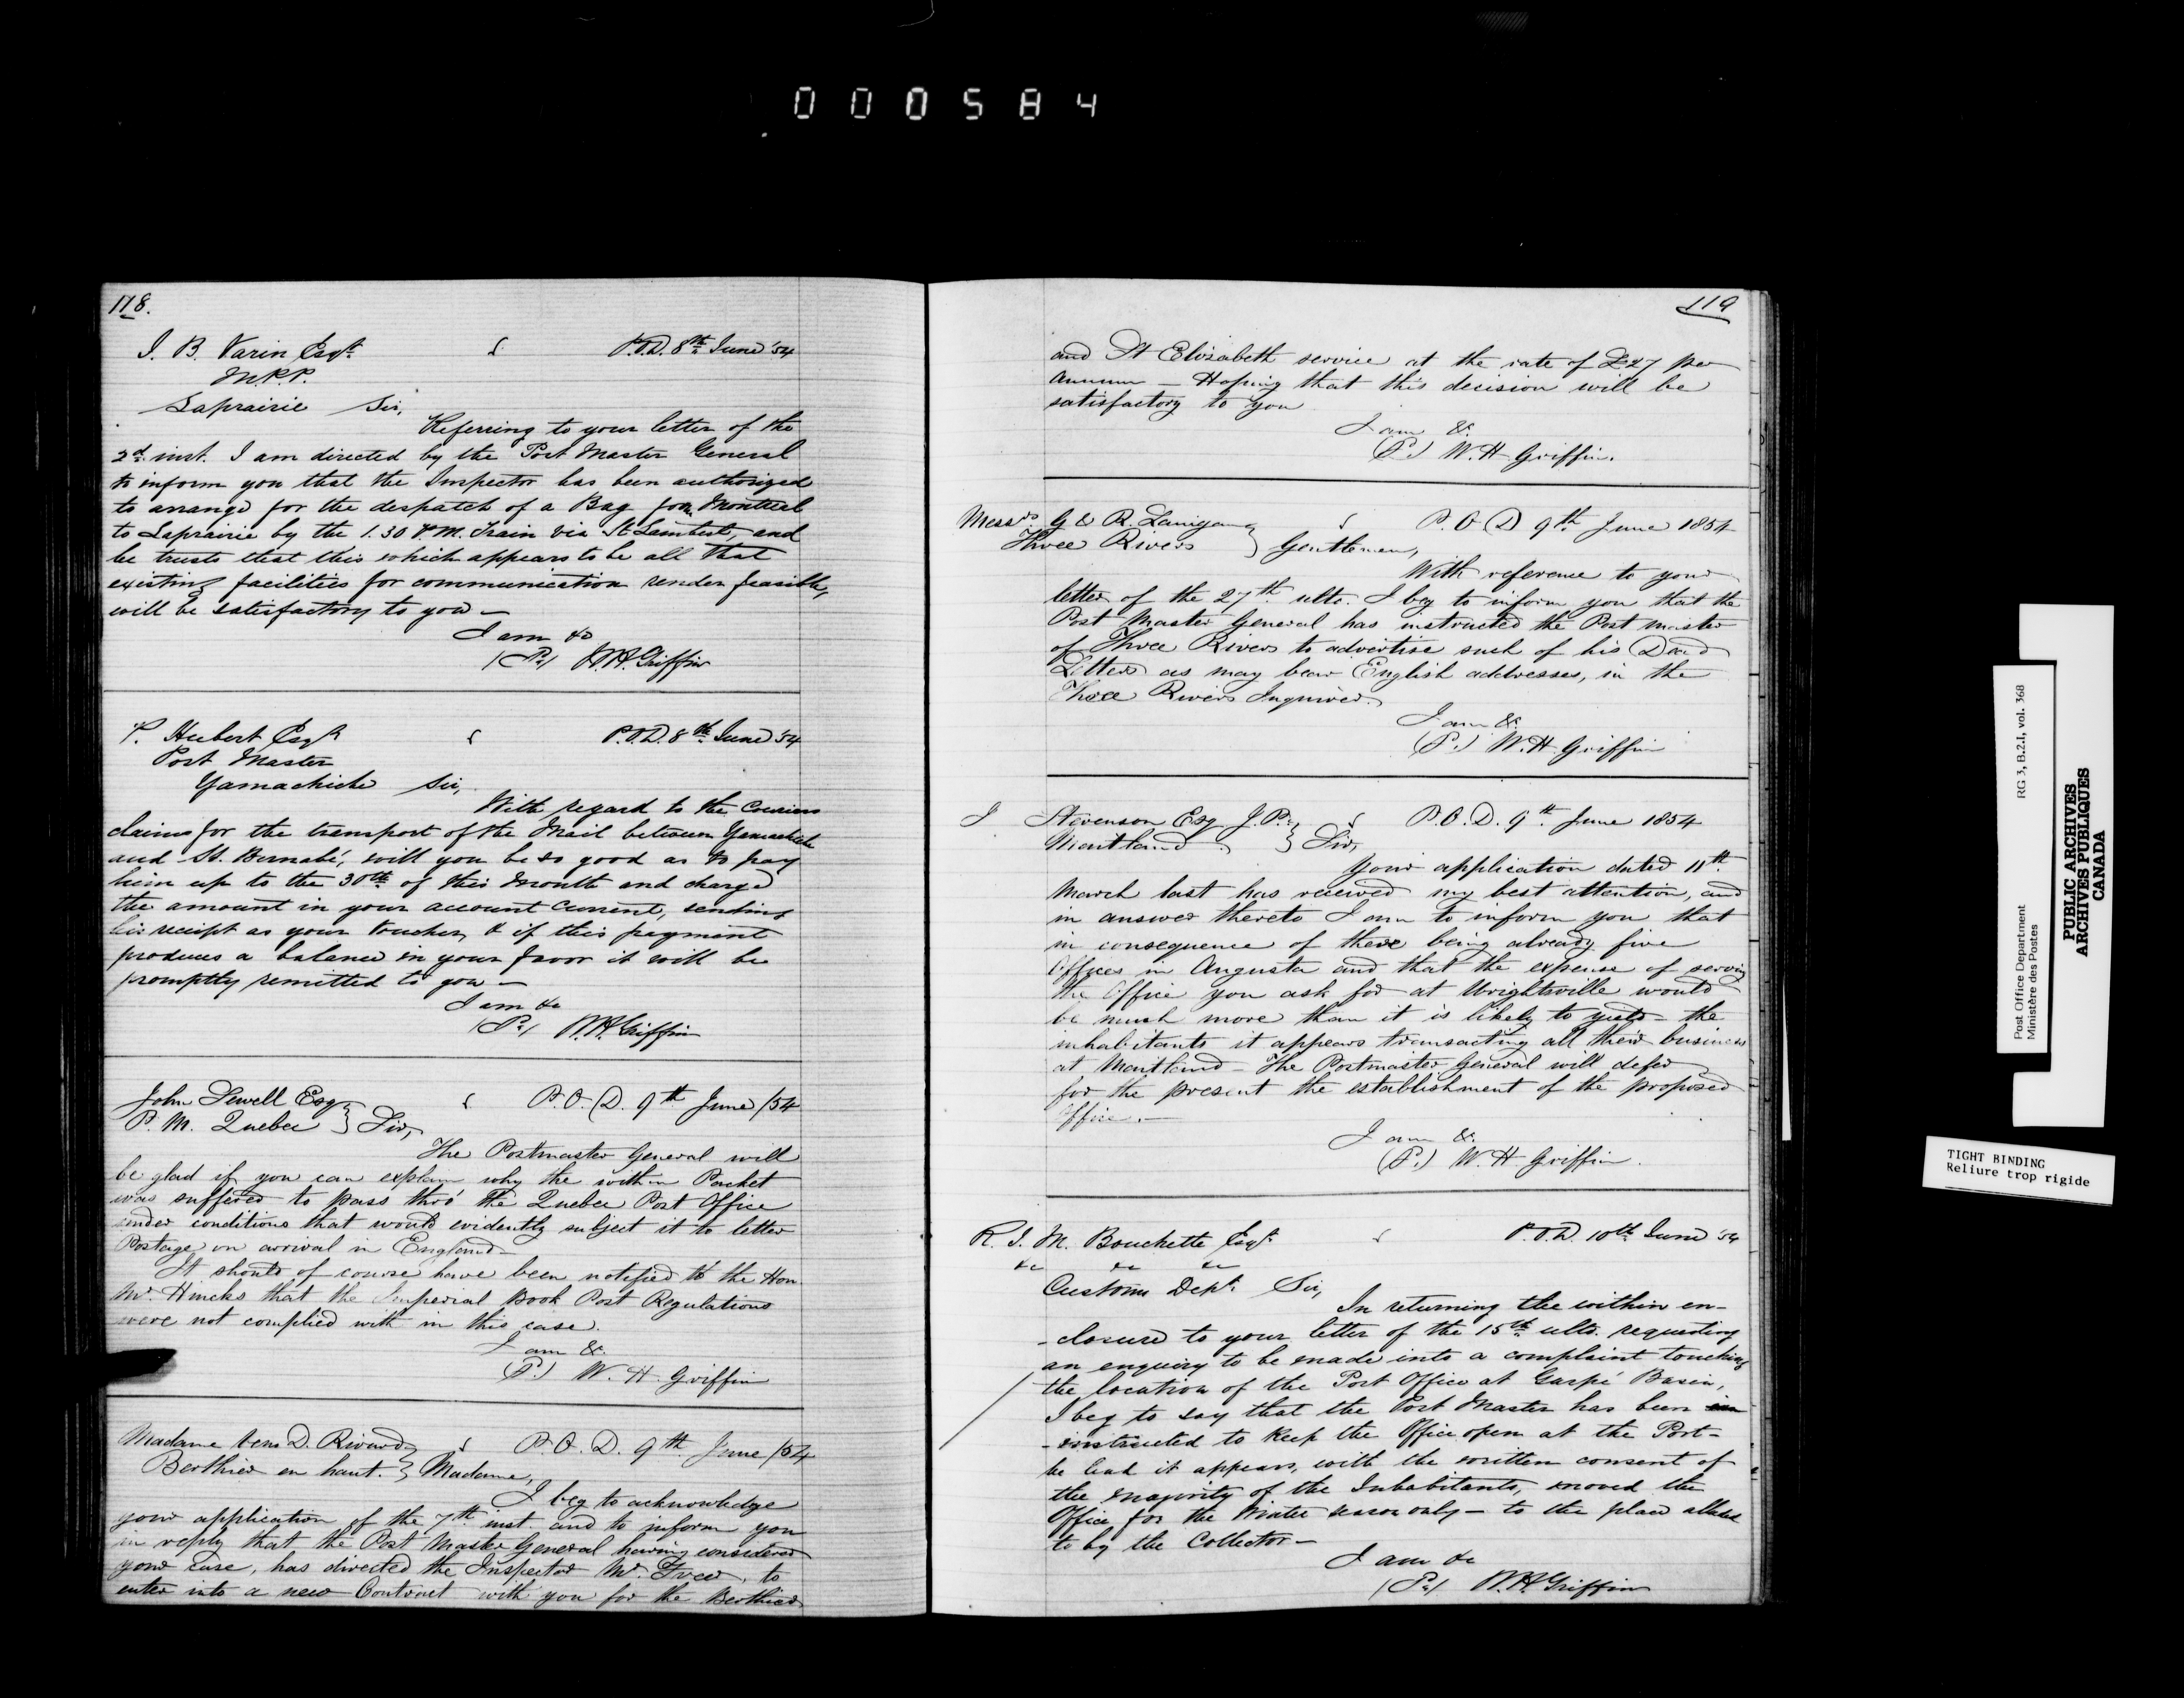 000584
118.
J. B. Varin Esqr. P.O.D. 8th June '54
M.P.P.
Laprairie Sir,
Referring to your letter of the
2d. inst. I am directed by the Post Master General
to inform you that the Inspector has been authorized
to arrange for the despatch of a Bag from Montreal
to Laprairie by the 1.30 P.M. Train via St Lambert, and
he trusts that this which appears to be all that
existing facilities for communication render feasible,
will be satisfactory to you —
I am &c
W.H. Griffin
P. Hubert Esqr P.O.D. 8th June '54
Post Master
Yamachiche Sir,
With regard to the Couriers
claims for the transport of the Mail between Yamachiche
and St. Bernabé, will you be so good as to pay
him up to the 30th of this month and charge
the amount in your account Current, sending
his receipt as your Voucher, & if this payment
produces a balance in your favor it will be
promptly remitted to you —
I am &c
W.H. Griffin
John Sewell Esq P.O.D. 9th June /54
P. M. Quebec } Sir,
The Postmaster General will
be glad if you can explain why the within Packet
was suffered to pass thro' the Quebec Post Office
under conditions that would evidently subject it to letter
Postage on arrival in England —
It should of course have been notified to the Hon.
Mr. Hincks that the Imperial Book Post Regulations
were not complied with in this case.
I am &c.
W. H. Griffin
Madame D. Rivard P.O.D. 9th June /54
Berthier en haut. } Madame,
I beg to acknowledge
your application of the 7th inst. and to inform you
in reply that the Post Master General having considered
your case, has directed the Inspector Mr. Freer, to
enter into a new Contract with you for the Berthier
119
and St Elizabeth service at the rate of £27 per
annum — Hoping that this decision will be
satisfactory to you
I am &c.
W. H Griffin.
Messrs. G & R. Lanigan P.O.D 9th June 1854
Three Rivers } Gentlemen,
With reference to your
letter of the 27th. ulto. I beg to inform you that the
Post Master General has instructed the Post master
of Three Rivers to advertise such of his Dead
Letters as may bear English addresses, in the
Three Rivers Inquirer.
I am &c.
W. H Griffin
J Stevenson Esq J.P. P.O.D. 9th June 1854
Maitland } Sir,
Your application dated 11th
March last has received my best attention, and
in answer thereto I am to inform you that
in consequence of there being already five
Offices in Augusta and that the expense of serving
the Office you ask for at Wrightsville would
be much more than it is likely to yield — the
inhabitants it appears transacting all their business
at Maitland — The Postmaster General will defer
for the present the establishment of the proposed
Office. —
I am &c.
W. H Griffin.
R. S. M. Bouchette Esqr. P.O.D. 10th June '54
&c &c &c
Customs Dept. Sir,
In returning the within en-
-closure to your letter of the 15th ulto. requesting
an enquiry to be made into a complaint touching
the location of the Post Office at Gaspé Basin,
I beg to say that the Post Master has been
-instructed to keep the Office open at the Port —
he had it appears, with the written consent of
the majority of the Inhabitants, moved the
Office for the Winter season only — to the place alluded
to by the Collector —
I am &c
W.H. Griffin
Post Office Department RG 3, B.2.I, vol. 368
Ministère des Postes
PUBLIC ARCHIVES
ARCHIVES PUBLIQUES
CANADA
TIGHT BINDING
Reliure trop rigide